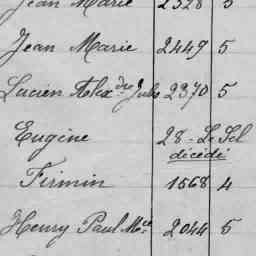 Jean Marie 2328 5
Jean Marie 2449 5
Lucien Alex dre Jules 2370 5
Eugène 28 - L
décédé
Firmin 1568 4
Henry Paul Mce 2044 5